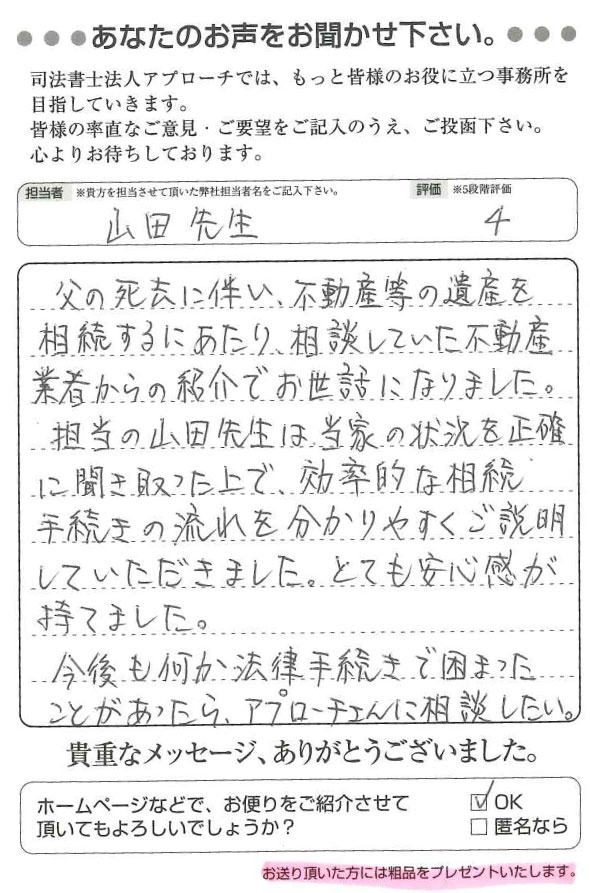 ●●●あなたのお声をお聞かせ下さい。●●●
司法書士法人アプローチでは、もっと皆様のお役に立つ事務所を
目指していきます。
皆様の率直なご意見・ご要望をご記入のうえ、ご投函下さい。
心よりお待ちしております。
担当者 ※貴方を担当させて頂いた弊社担当者名をご記入下さい。 評価 ※5段階評価
山田先生 4
父の死去に伴い、不動産等の遺産を
相続するにあたり、相談していた不動産
業者からの紹介でお世話になりました。
担当の山田先生は当家の状況を正確
に聞き取った上で、効率的な相続
手続きの流れを分かりやすくご説明
していただきました。とても安心感が
持てました。
今後も何か法律手続きで困まった
ことがあったら、アプローチさんに相談したい。
貴重なメッセージ、ありがとうございました。
ホームページなどで、お便りをご紹介させて ☑OK
頂いてもよろしいでしょうか? □匿名なら
お送り頂いた方には粗品をプレゼントいたします。